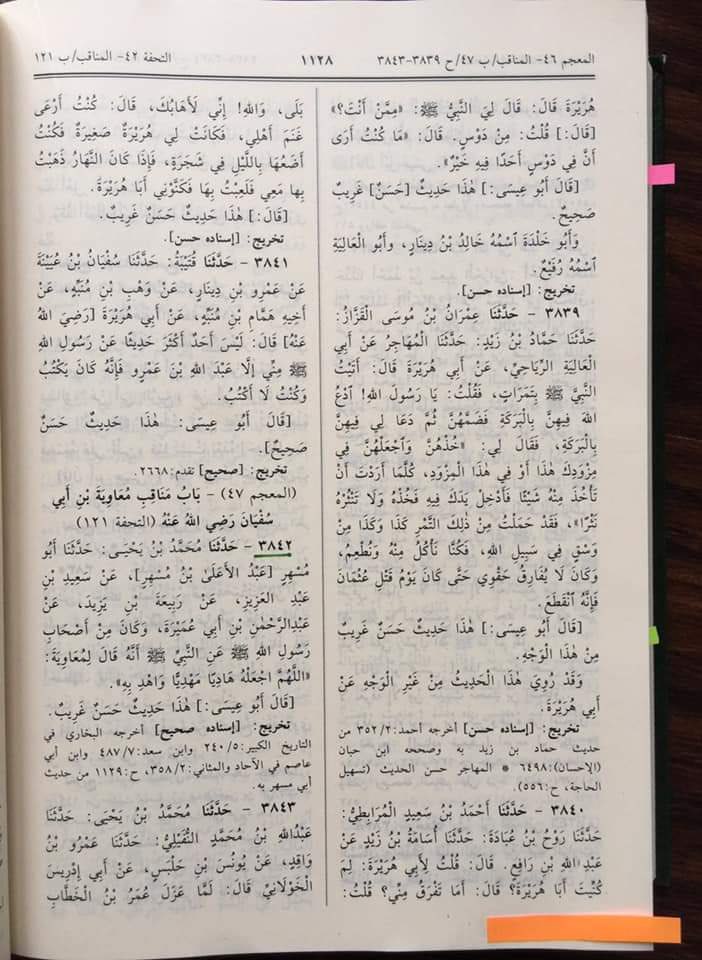 المعجم ٤٦- المناقب/ ب ٤٧/ح ٣٨٣٩-٣٨٤٣
١١٢٨
التحفة ٤٢- المناقب/ ب ١٢١
هُرَيْرَةَ قَالَ: قَالَ لِيَ النَّبِيُّ ﷺ: «مِمَّنْ أَنْتَ؟»
[قَالَ:] قُلْتُ: مِنْ دَوْسٍ. قَالَ: «مَا كُنْتُ أَرَى
أَنَّ فِي دَوْسٍ أَحَدًا فِيهِ خَيْرٌ».
[قَالَ أَبُو عِيسَى:] هٰذَا حَدِيثٌ [حَسَنٌ] غَرِيبٌ
صَحِيحٌ.
وَأَبُو خَلْدَةَ ٱسْمُهُ خَالِدُ بْنُ دِينَارٍ، وَأَبُو الْعَالِيَةِ
ٱسْمُهُ رُفَيْعٌ.
تخريج: [إسناده حسن].
٣٨٣٩ - حَدَّثَنَا عِمْرَانُ بْنُ مُوسَى الْقَزَّازُ:
حَدَّثَنَا حَمَّادُ بْنُ زَيْدٍ: حَدَّثَنَا الْمُهَاجِرُ عَنْ أَبِي
الْعَالِيَةِ الرِّيَاحِيِّ، عَنْ أَبِي هُرَيْرَةَ قَالَ: أَتَيْتُ
النَّبِيَّ ﷺ بِتَمَرَاتٍ، فَقُلْتُ: يَا رَسُولَ اللهِ! ادْعُ
اللهَ فِيهِنَّ بِالْبَرَكَةِ فَضَمَّهُنَّ ثُمَّ دَعَا لِي فِيهِنَّ
بِالْبَرَكَةِ، فَقَالَ لِي: «خُذْهُنَّ وَٱجْعَلْهُنَّ فِي
مِزْوَدِكَ هٰذَا أَوْ فِي هٰذَا الْمِزْوَدِ، كُلَّمَا أَرَدْتَ أَنْ
تَأْخُذَ مِنْهُ شَيْئًا فَأَدْخِلْ يَدَكَ فِيهِ فَخُذْهُ وَلَا تَنْثُرْهُ
نَثْرًا»، فَقَدْ حَمَلْتُ مِنْ ذٰلِكَ التَّمْرِ كَذَا وَكَذَا مِنْ
وَسْقٍ فِي سَبِيلِ اللهِ، فَكُنَّا نَأْكُلُ مِنْهُ وَنُطْعِمُ،
وَكَانَ لَا يُفَارِقُ حَقْوِي حَتَّى كَانَ يَوْمُ قَتْلِ عُثْمَانَ
فَإِنَّهُ ٱنْقَطَعَ.
[قَالَ أَبُو عِيسَى:] هٰذَا حَدِيثٌ حَسَنٌ غَرِيبٌ
مِنْ هٰذَا الْوَجْهِ.
وَقَدْ رُوِيَ هٰذَا الْحَدِيثُ مِنْ غَيْرِ هٰذَا الْوَجْهِ عَنْ
أَبِي هُرَيْرَةَ.
تخريج: [إسناده حسن] أخرجه أحمد:٣٥٢/٢ من
حديث حماد بن زيد به وصححه ابن حبان
(الإحسان):٦٤٩٨ * المهاجر حسن الحديث (تسهيل
الحاجة، ح:٥٥٦).
٣٨٤٠ - حَدَّثَنَا أَحْمَدُ بْنُ سَعِيدٍ الْمُرَابِطِيُّ:
حَدَّثَنَا رَوْحُ بْنُ عُبَادَةَ: حَدَّثَنَا أُسَامَةُ بْنُ زَيْدٍ عَنْ
عَبْدِ اللهِ بْنِ رَافِعٍ. قَالَ: قُلْتُ لِأَبِي هُرَيْرَةَ: لِمَ
كُنِّيتَ أَبَا هُرَيْرَةَ؟ قَالَ: أَمَا تَفْرَقُ مِنِّي؟ قُلْتُ:
بَلَى، وَاللهِ! إِنِّي لَأَهَابُكَ، قَالَ: كُنْتُ أَرْعَى
غَنَمَ أَهْلِي، فَكَانَتْ لِي هُرَيْرَةٌ صَغِيرَةٌ فَكُنْتُ
أَضَعُهَا بِاللَّيْلِ فِي شَجَرَةٍ، فَإِذَا كَانَ النَّهَارُ ذَهَبْتُ
بِهَا مَعِي فَلَعِبْتُ بِهَا فَكَنَّوْنِي أَبَا هُرَيْرَةَ.
[قَالَ:] هٰذَا حَدِيثٌ حَسَنٌ غَرِيبٌ.
تخريج: [إسناده حسن].
٣٨٤١ - حَدَّثَنَا قُتَيْبَةُ: حَدَّثَنَا سُفْيَانُ بْنُ عُيَيْنَةَ
عَنْ عَمْرِو بْنِ دِينَارٍ، عَنْ وَهْبِ بْنِ مُنَبِّهٍ، عَنْ
أَخِيهِ هَمَّامِ بْنِ مُنَبِّهٍ، عَنْ أَبِي هُرَيْرَةَ [رَضِيَ اللهُ
عَنْهُ] قَالَ: لَيْسَ أَحَدٌ أَكْثَرَ حَدِيثًا عَنْ رَسُولِ اللهِ
ﷺ مِنِّي إِلَّا عَبْدَ اللهِ بْنَ عَمْرٍو فَإِنَّهُ كَانَ يَكْتُبُ
وَكُنْتُ لَا أَكْتُبُ.
[قَالَ أَبُو عِيسَى: هٰذَا حَدِيثٌ حَسَنٌ
صَحِيحٌ].
تخريج: [صحيح] تقدم:٢٦٦٨.
(المعجم ٤٧) - بَابُ مَنَاقِبِ مُعَاوِيَةَ بْنِ أَبِي
سُفْيَانَ رَضِيَ اللهُ عَنْهُ (التحفة ١٢١)
٣٨٤٢ - حَدَّثَنَا مُحَمَّدُ بْنُ يَحْيَى: حَدَّثَنَا أَبُو
مُسْهِرٍ [عَبْدُ الْأَعْلَى بْنُ مُسْهِرٍ]، عَنْ سَعِيدِ بْنِ
عَبْدِ الْعَزِيزِ، عَنْ رَبِيعَةَ بْنِ يَزِيدَ، عَنْ
عَبْدِالرَّحْمٰنِ بْنِ أَبِي عُمَيْرَةَ، وَكَانَ مِنْ أَصْحَابِ
رَسُولِ اللهِ ﷺ عَنِ النَّبِيِّ ﷺ أَنَّهُ قَالَ لِمُعَاوِيَةَ:
«اللّٰهُمَّ اجْعَلْهُ هَادِيًا مَهْدِيًّا وَاهْدِ بِهِ».
[قَالَ أَبُو عِيسَى:] هٰذَا حَدِيثٌ حَسَنٌ غَرِيبٌ.
تخريج: [إسناده صحيح] أخرجه البخاري في
التاريخ الكبير:٢٤٠/٥ وابن سعد:٤٨٧/٧ وابن أبي
عاصم في الآحاد والمثاني:٣٥٨/٢، ح:١١٢٩ من حديث
أبي مسهر به.
٣٨٤٣ - حَدَّثَنَا مُحَمَّدُ بْنُ يَحْيَى: حَدَّثَنَا
عَبْدُاللهِ بْنُ مُحَمَّدٍ النُّفَيْلِيُّ: حَدَّثَنَا عَمْرُو بْنُ
وَاقِدٍ، عَنْ يُونُسَ بْنِ حَلْبَسٍ، عَنْ أَبِي إِدْرِيسَ
الْخَوْلَانِيِّ قَالَ: لَمَّا عَزَلَ عُمَرُ بْنُ الْخَطَّابِ